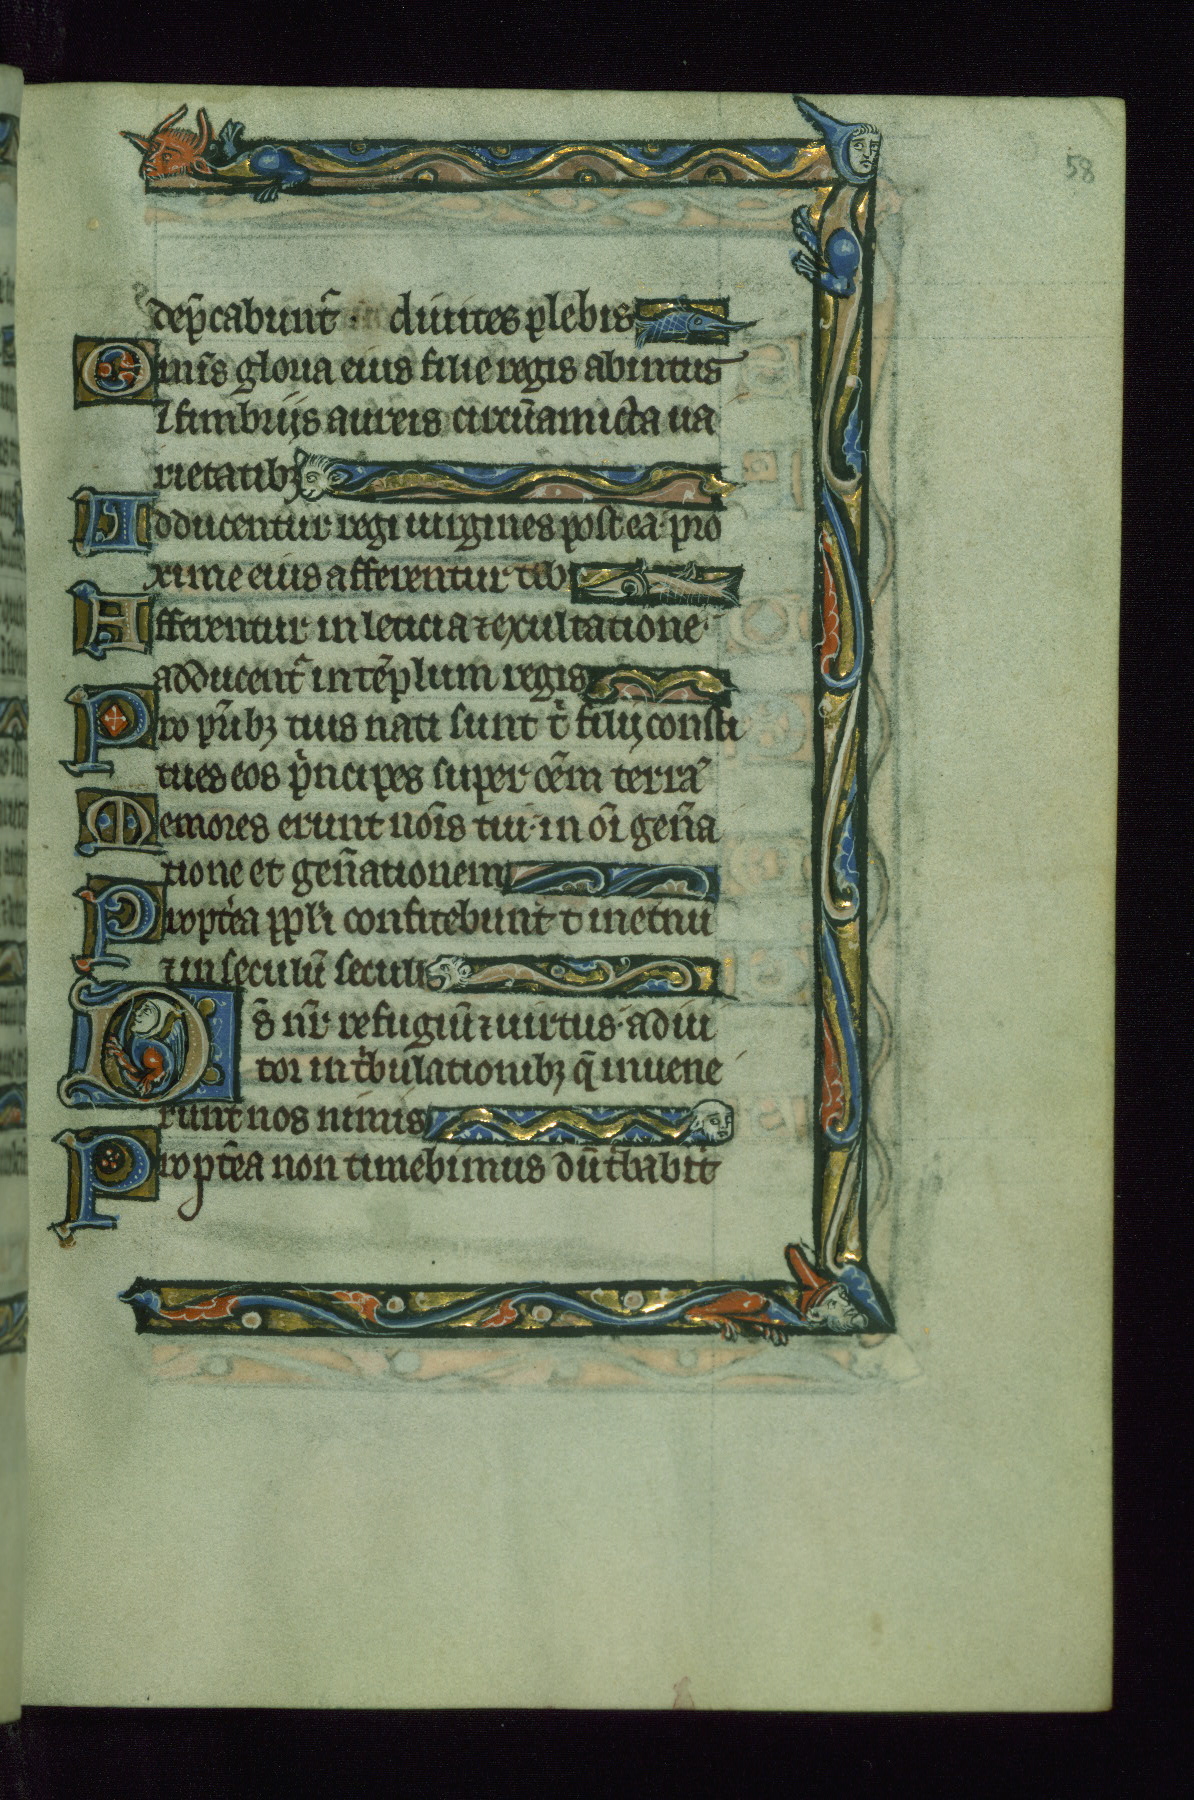 58
dep̄cabunt᷑ · diuites plebis
Omīs gloria eius filie regis abintus
⁊ fimbrijs aureis circūamicta ua
rietatibꝫ
Adducentur regi uirgines post ea· pro
xime eius afferentur tibi
Afferentur in leticia ⁊ exultatione·
adducent᷑ in tēplum regis
Pro pr̄ibꝫ tuis nati sunt t̄ filij consti
tues eos pͥncipes super oēm terrā
Memores erunt noīs tui· in oī gen̄a
tione et gen̄ationem
Propt̄ea ppl̄i confitebunt᷑ t̄ inet̄nū
⁊ in seculū seculi
Ds̄ nr̄ refugiū ⁊ uirtus· adiu
tor in tͥbulationibꝫ q̄ inuene
runt nos nimis
Propt̄ea non timebimus dū t᷑babit᷑